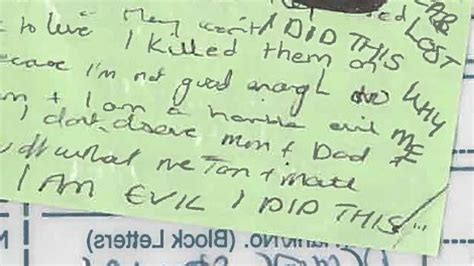 to live They won't I DID THIS LOST
I killed them on
because I'm not good enough WHY
+ I am a horrible evil ME
I don't deserve Mum + Dad +
what me Tom + Matt
I AM EVIL I DID THIS
No. (Block Letters)